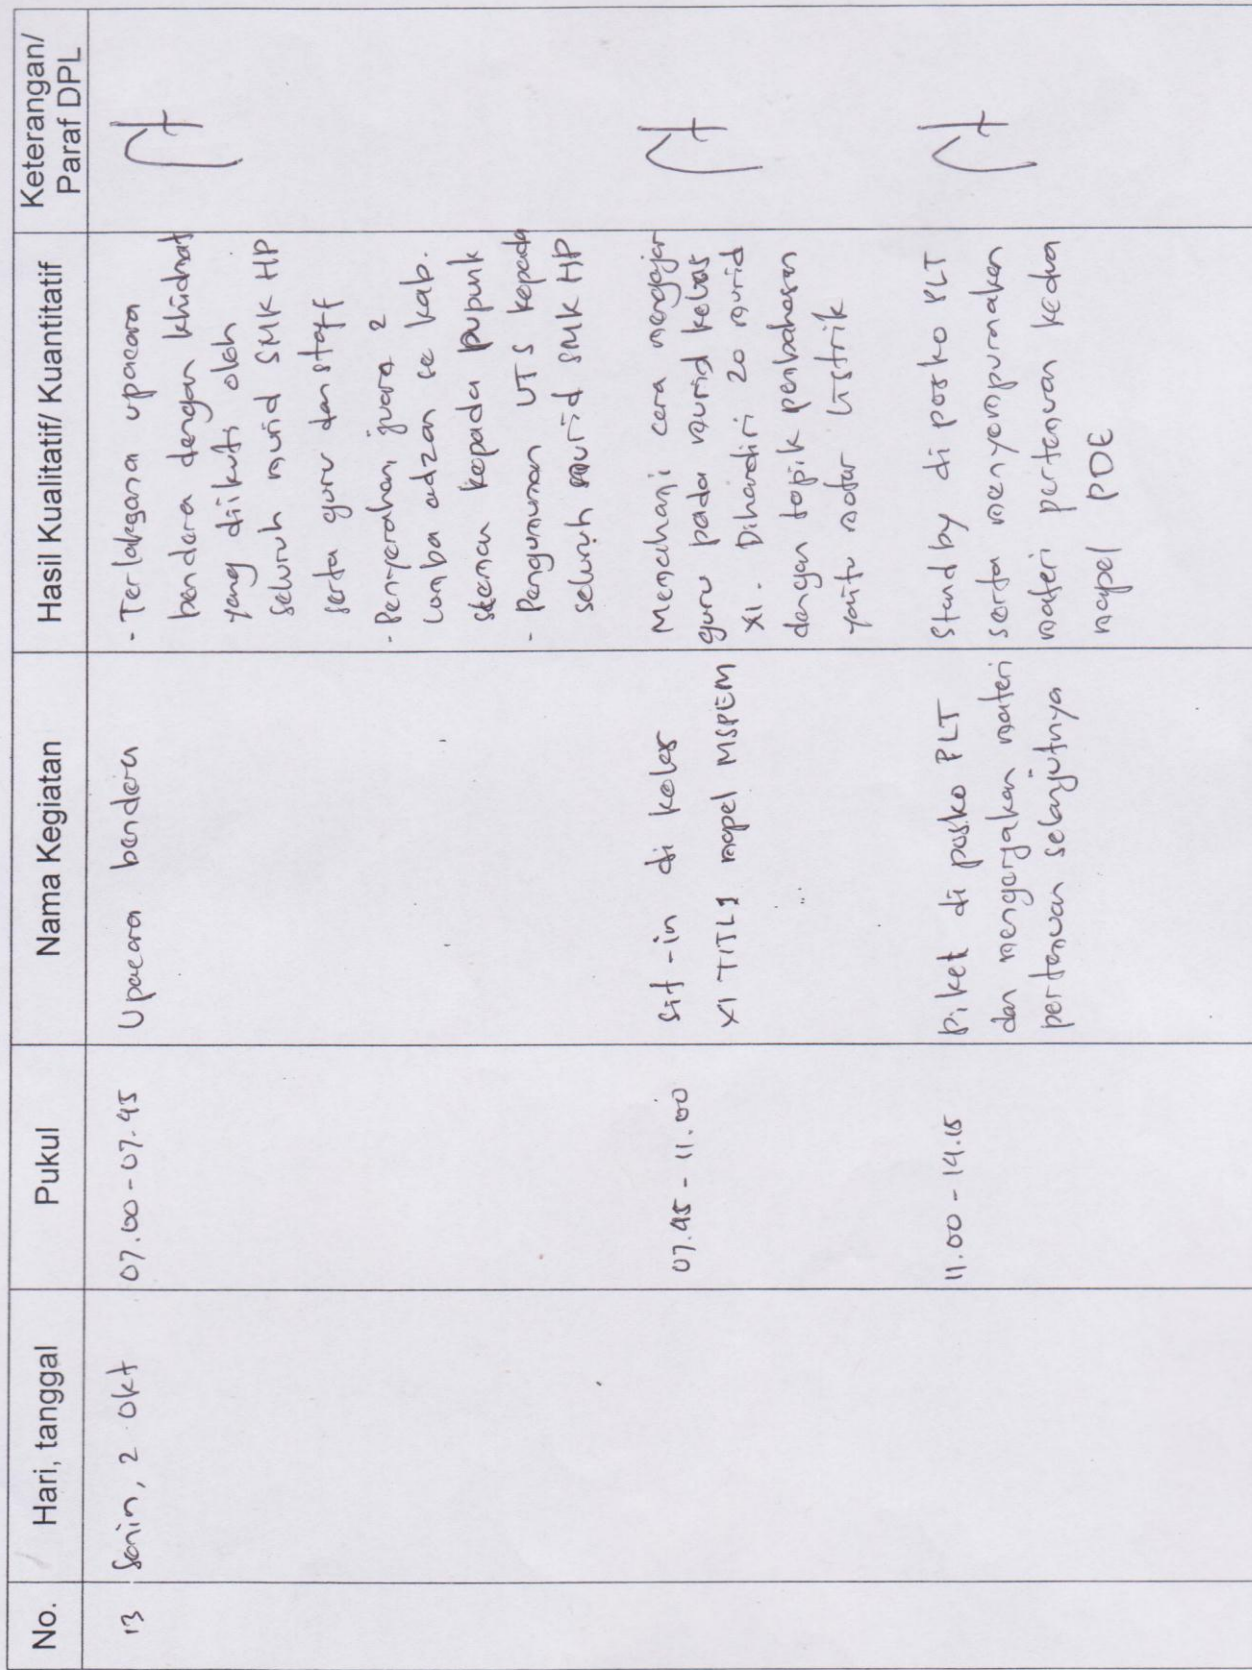 No.
Hari, tanggal
Pukul
Nama Kegiatan
Hasil Kualitatif/ Kuantitatif
Keterangan/
Paraf DPL
13
Senin, 2 Okt
07.00 - 07.45
Upacara bendera
- Terlaksana upacara
bendera dengan khidmat
yang diikuti oleh
seluruh murid SMK HP
serta guru dan staff
- Penyerahan juara 2
Lomba adzan se kab.
sleman kepada
- Pengumuman UTS kepada
seluruh murid SMK HP
07.45 - 11.00
Sit-in di kelas
XI TITL1 mapel MSPEM
Memahami cara mengajar
guru pada murid kelas
XI. Dihadiri 20 murid
dengan topik pembahasan
yaitu motor listrik
11.00 - 14.15
Piket di posko PLT
dan mengerjakan materi
pertemuan selanjutnya
Stand by di posko PLT
serta menyempurnakan
materi pertemuan kedua
mapel PDE